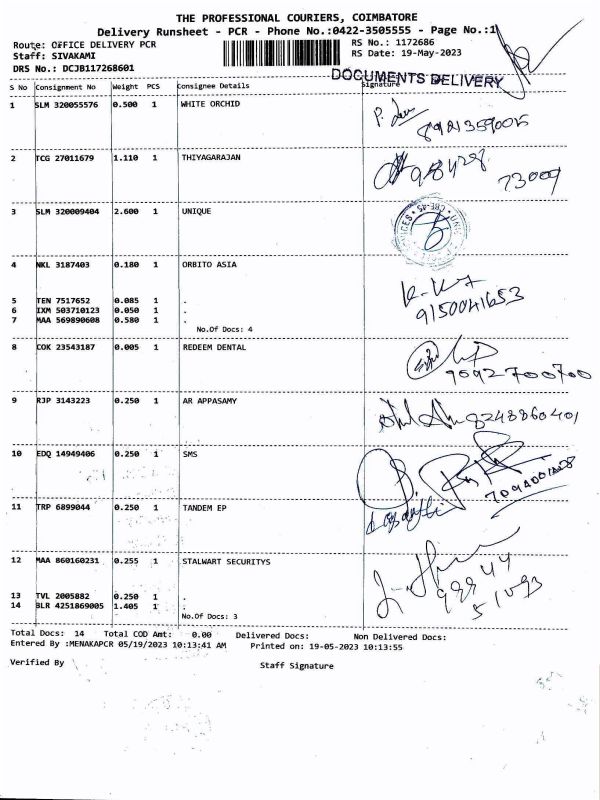 THE PROFESSIONAL COURIERS, COIMBATORE
Delivery Runsheet - PCR - Phone No.:0422-3505555 - Page No.:1
Route: OFFICE DELIVERY PCR RS No.: 1172686
Staff: SIVAKAMI RS Date: 19-May-2023
DRS No.: DCJB117268601
DOCUMENTS DELIVERY
S No Consignment No Weight PCS Consignee Details Signature
1 SLM 320055576 0.500 1 WHITE ORCHID
8921359005
2 TCG 27011679 1.110 1 THIYAGARAJAN
98428
73009
3 SLM 320009404 2.600 1 UNIQUE
4 NKL 3187403 0.180 1 ORBITO ASIA
5 TEN 7517652 0.085 1 .
9150041653
6 IXM 503710123 0.050 1 .
7 MAA 569890608 0.580 1 .
No.Of Docs: 4
8 COK 23543187 0.005 1 REDEEM DENTAL
9092700700
9 RJP 3143223 0.250 1 AR APPASAMY
8248860401
10 EDQ 14949406 0.250 1 SMS
11 TRP 6899044 0.250 1 TANDEM EP
12 MAA 860160231 0.255 1 STALWART SECURITYS
99944
13 TVL 2005882 0.250 1 .
51093
14 BLR 4251869005 1.405 1 .
No.Of Docs: 3
Total Docs: 14 Total COD Amt: 0.00 Delivered Docs: Non Delivered Docs:
Entered By :MENAKAPCR 05/19/2023 10:13:41 AM Printed on: 19-05-2023 10:13:55
Verified By Staff Signature